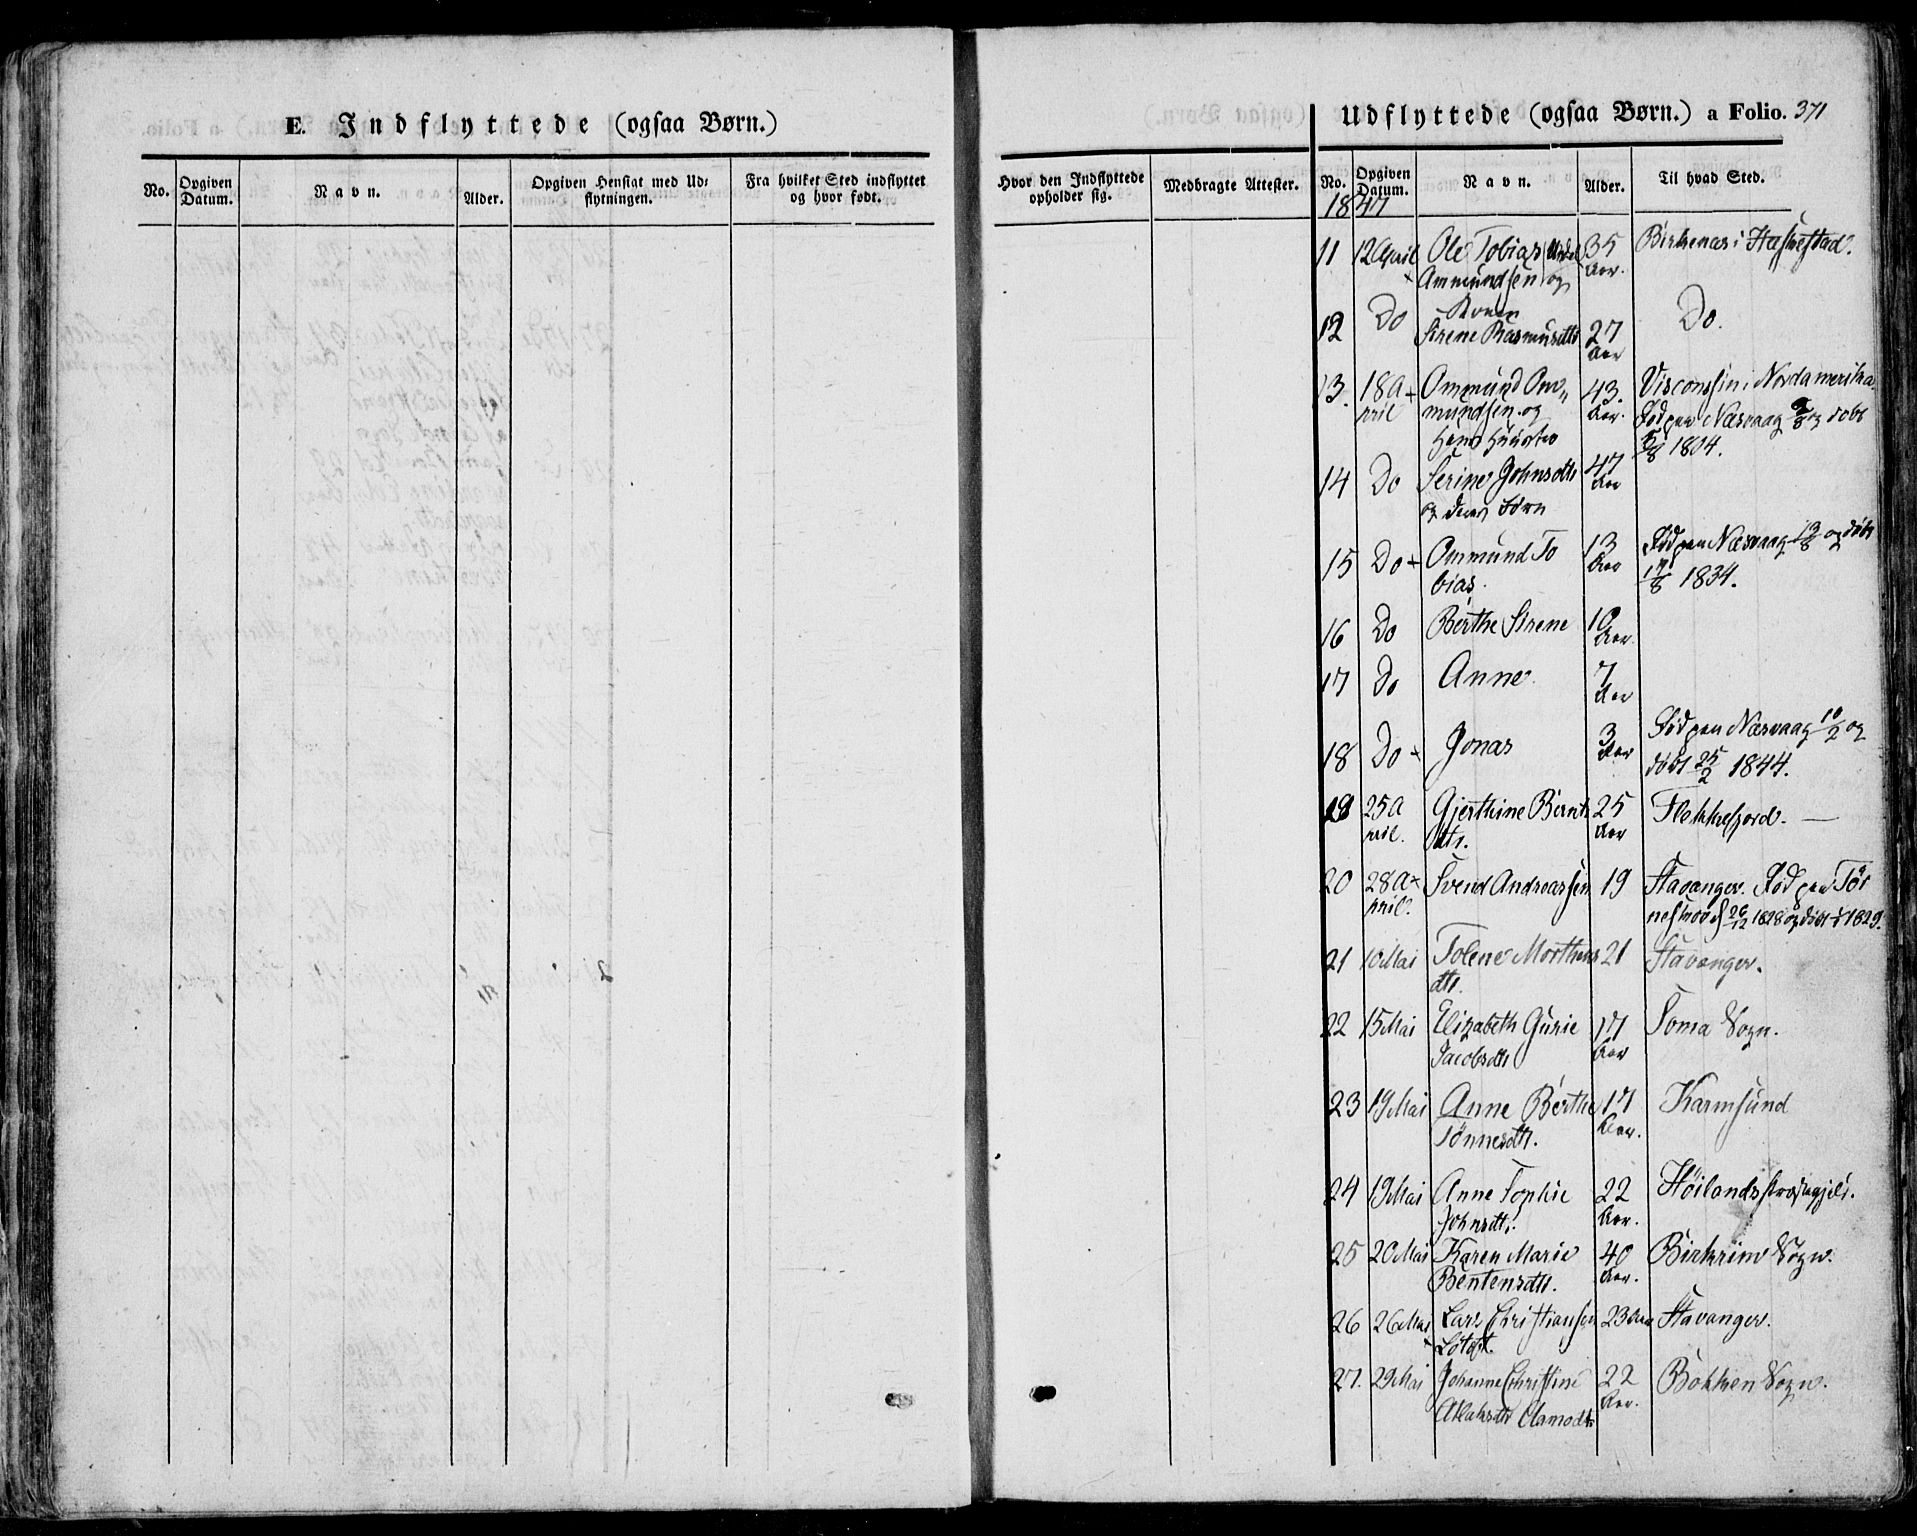 E. Indflyttede (ogsaa Børn.)
No.
Opgiven Datum.
Navn.
Alder.
Opgiven Hensigt med Udflytningen.
Fra hvilket Sted indflyttet og hvor født.
Hvor den Indflyttede opholder sig.
Medbragte Attester.
Udflyttede (ogsaa Børn.) a Folio. 371
No.
Opgiven Datum.
Navn.
Alder.
Til hvad Sted.
1847
11 12 April Ole Tobias 35 Birkenæs i Hæskestad.
Ammundsen og Aar.
Konen
12 Do Sirene Rasmusdtr 27 Do.
Aar
13. 18 A Ommund Om„ 43. Visconssin i Nordamerika
pril mundsen og Aar. Fød paa Næsvaag og døbt
hans Hustro 1804.
14 Do Serine Johnsdtr 47
og deres Børn Aar
15 Do Ommund To 13 Fød paa Næsvaag 13/8 og døbt
bias. Aar 17/8 1834.
16 Do Berthe Sirene 10
Aar.
17 Do Anne 7
Aar
18 Do Jonas 3 Fød paa Næsvaag 10/2 og
Aar døbt 25/2 1844.
19 25 A Gjerthine Bernts 25 Flekkefjord.
pril. dtr. Aar
20 28 A Svend Andreassen 19 Stavanger. Fød paa Tør
pril. 26/12 1828 og døbt 1829.
21 10 Mai Tolene Morthens 21 Stavanger.
dtr.
22 15 Mai Elizabeth Gurie 17 Soma Sogn.
Jacobsdtr Aar
23 19 Mai Anne Berthe 17 Karmsund
Tønnesdtr. Aar.
24 19 Mai Anne Sophie 22 Høilands Præstegjeld.
Johnsdtr. Aar.
25 20 Mai Karen Marie 40 Birkrim Sogn.
Bentensdtr. Aar.
26 26 Mai Lars Christiansen 23 Aar Stavanger.
27. 29 Mai Johanne Christine 22 Bokken Sogn.
Aar.